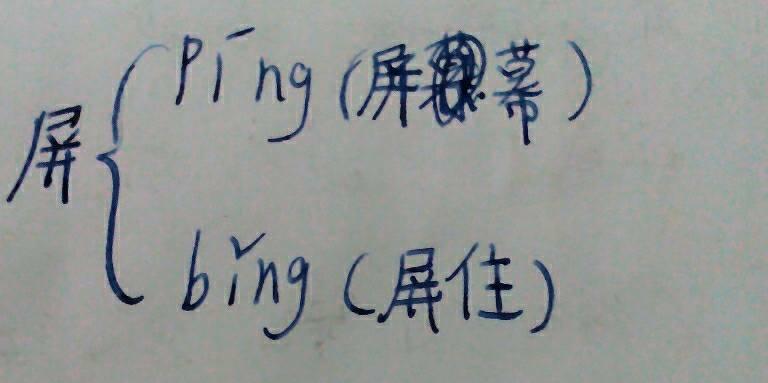 píng(屏幕)
屏
bǐng(屏住)